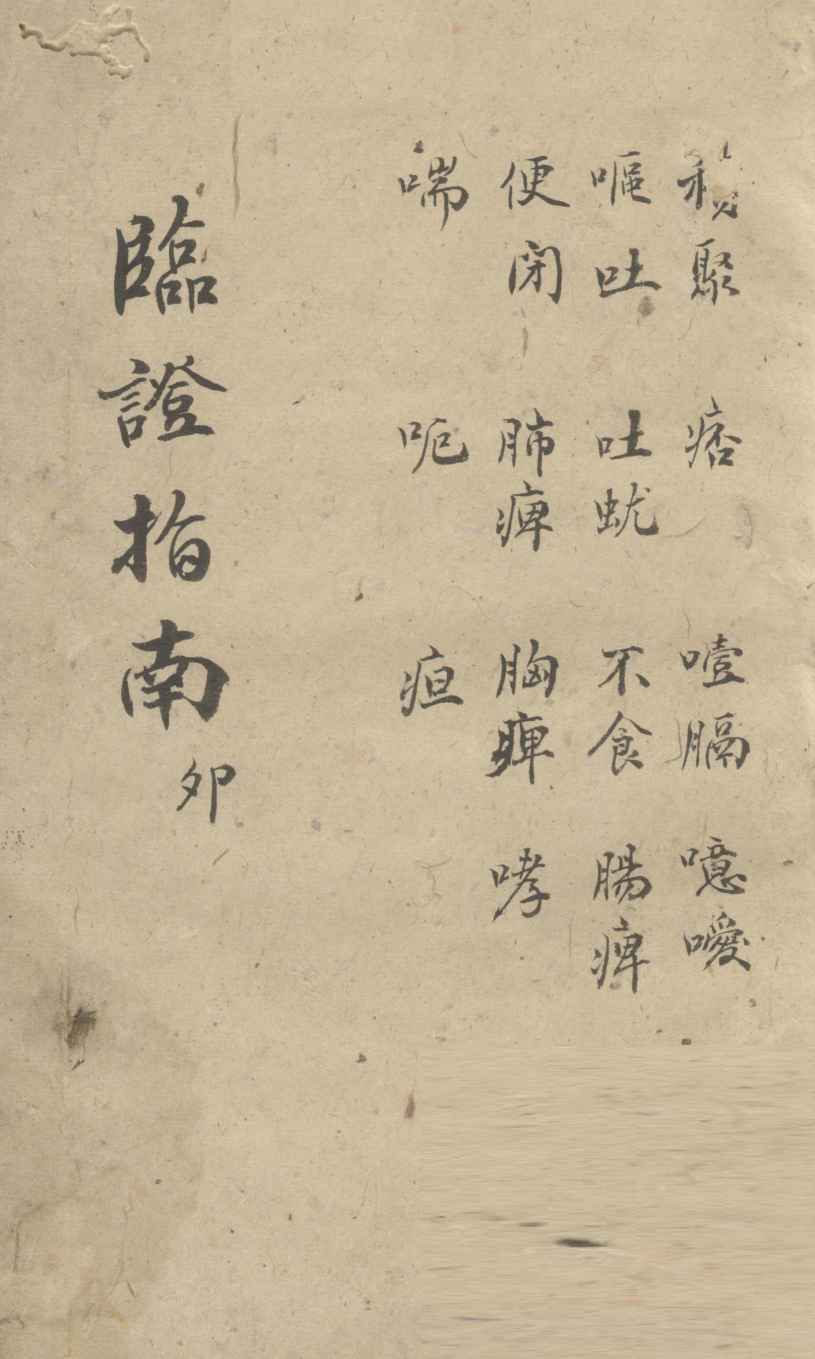 積聚 痞 噎膈 噫噯
嘔吐 吐蚘 不食 腸痺
便閉 肺痺 胸痺 哮
喘 呃 疸
臨證指南 卯